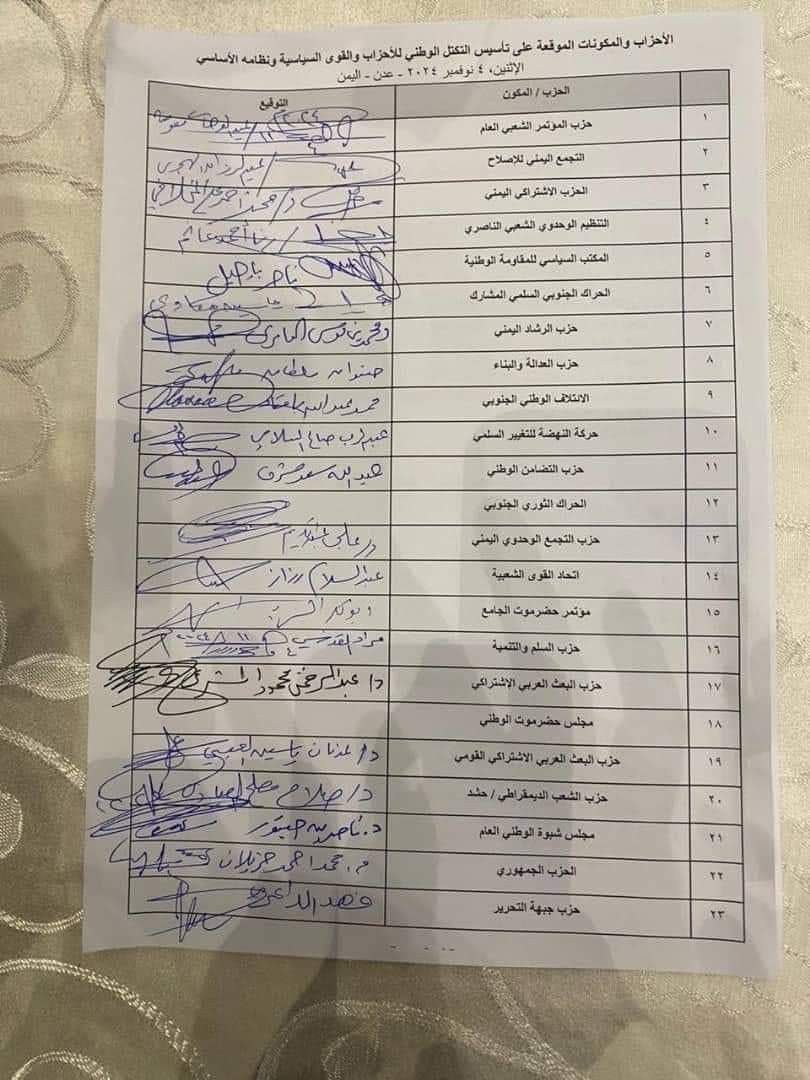 الأحزاب والمكونات الموقعة على تأسيس التكتل الوطني للأحزاب والقوى السياسية ونظامه الأساسي
الإثنين، ٤ نوفمبر ٢٠٢٤ - عدن - اليمن
الحزب / المكون التوقيع
١ حزب المؤتمر الشعبي العام
٢ التجمع اليمني للإصلاح عبدالرزاق الهجري
٣ الحزب الاشتراكي اليمني د/ محمد احمد علي المخلافي
٤ التنظيم الوحدوي الشعبي الناصري
٥ المكتب السياسي للمقاومة الوطنية ناصر باجيل
٦ الحراك الجنوبي السلمي المشارك
٧ حزب الرشاد اليمني د محمد بن موسى العامري
٨ حزب العدالة والبناء سلطان
٩ الائتلاف الوطني الجنوبي محمد عبدالله
١٠ حركة النهضة للتغيير السلمي عبدالرب صالح السلامي
١١ حزب التضامن الوطني عبدالله سعد
١٢ الحراك الثوري الجنوبي
١٣ حزب التجمع الوحدوي اليمني
١٤ اتحاد القوى الشعبية عبدالسلام رزاز
١٥ مؤتمر حضرموت الجامع
١٦ حزب السلم والتنمية مراد القدسي
١٧ حزب البعث العربي الإشتراكي د/ عبدالرحمن محمود
١٨ مجلس حضرموت الوطني
١٩ حزب البعث العربي الاشتراكي القومي د/ عدنان ياسين
٢٠ حزب الشعب الديمقراطي / حشد د/ صلاح
٢١ مجلس شبوة الوطني العام د. ناصر
٢٢ الحزب الجمهوري م. محمد احمد جزيلان
٢٣ حزب جبهة التحرير فهد